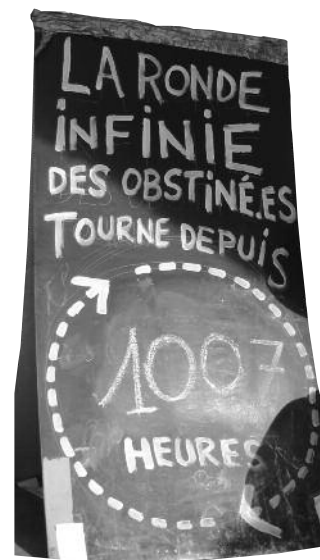 LA RONDE
iNFiNiE
DES OBSTiNÉ.ES
TOURNE DEPUiS
1007
HEURES